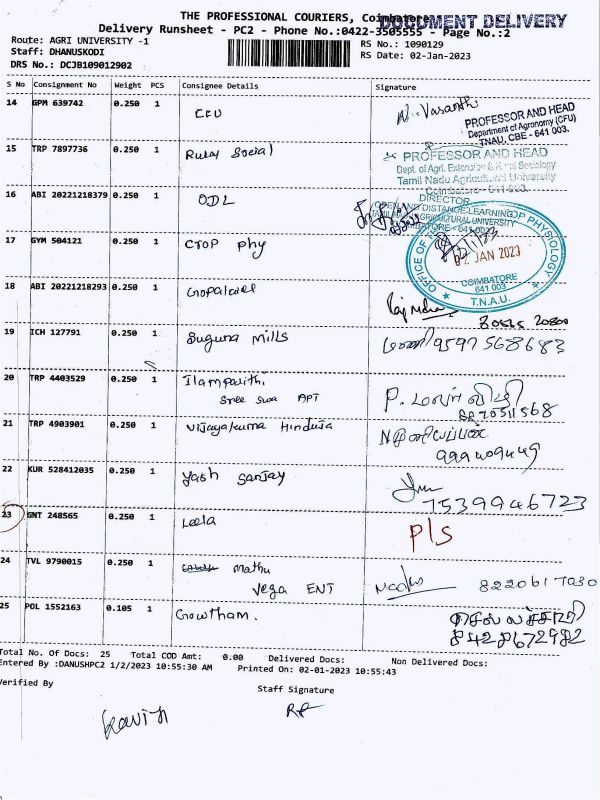 THE PROFESSIONAL COURIERS, Coimbatore
DOCUMENT DELIVERY
Delivery Runsheet - PC2 - Phone No.:0422-3505555 - Page No.:2
Route: AGRI UNIVERSITY -1
RS No.: 1090129
Staff: DHANUSKODI
RS Date: 02-Jan-2023
DRS No.: DCJB109012902
S No Consignment No Weight PCS Consignee Details Signature
14 GPM 639742 0.250 1 CFU N. Vasanthi
PROFESSOR AND HEAD
Department of Agronomy (CFU)
TNAU, CBE - 641 003.
15 TRP 7897736 0.250 1 Rural Social
PROFESSOR AND HEAD
Dept. of Agri. Extension & Rural Sociology
Tamil Nadu Agricultural University
Coimbatore - 641 003.
16 ABI 20221218379 0.250 1 ODL
DIRECTOR
OPEN AND DISTANCE LEARNING
TAMIL NADU AGRICULTURAL UNIVERSITY
COIMBATORE - 641 003
17 GYM 504121 0.250 1 Crop phy
OFFICE OF CROP PHYSIOLOGY
02 JAN 2023
COIMBATORE
641 003
T.N.A.U.
18 ABI 20221218293 0.250 1
19 ICH 127791 0.250 1 Suguna Mills மணி 9597568683
20 TRP 4403529 0.250 1 Ilamparithi P. மலர்விழி
Sree APT
21 TRP 4903901 0.250 1 Vijayakuma Hinduja
22 KUR 528412035 0.250 1 Yash Sanjay
7539946723
23 GNT 248565 0.250 1 Leela Pls
24 TVL 9790015 0.250 1 Mathu
Vega ENT 8220617030
25 POL 1552163 0.105 1 Gowtham.
8428672982
Total No. Of Docs: 25 Total COD Amt: 0.00 Delivered Docs: Non Delivered Docs:
Entered By :DANUSHPC2 1/2/2023 10:55:30 AM Printed On: 02-01-2023 10:55:43
Verified By
Staff Signature